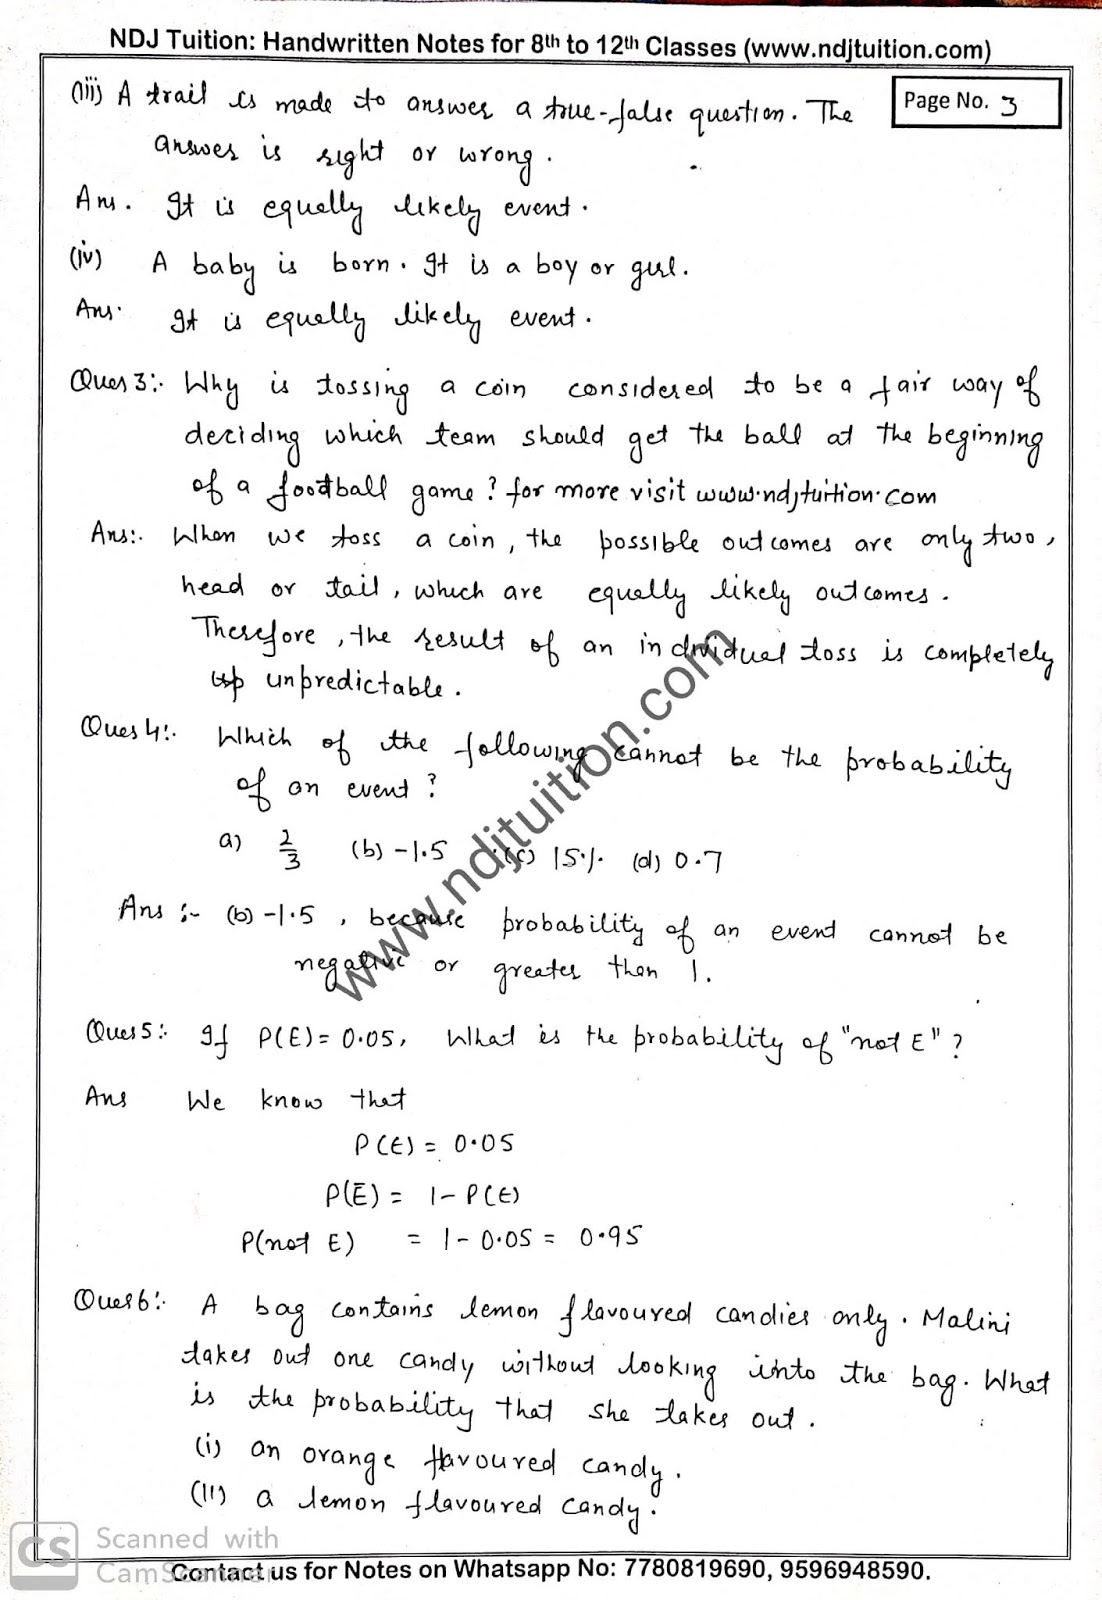 NDJ Tuition: Handwritten Notes for 8th to 12th Classes (www.ndjtuition.com)
Page No. 3
(iii) A trail is made to answer a true-false question. The
answer is right or wrong.
Ans. It is equally likely event.
(iv) A baby is born. It is a boy or girl.
Ans. It is equally likely event.
Ques 3:. Why is tossing a coin considered to be a fair way of
deciding which team should get the ball at the beginning
of a football game? for more visit www.ndjtuition.com
Ans:. When we toss a coin, the possible outcomes are only two,
head or tail, which are equally likely outcomes.
Therefore, the result of an individual toss is completely
unpredictable.
Ques 4:. Which of the following cannot be the probability
of an event?
a) 2/3 (b) -1.5 (c) 15% (d) 0.7
Ans :- (b) -1.5, because probability of an event cannot be
negative or greater than 1.
Ques 5:. If P(E) = 0.05, What is the probability of "not E"?
Ans We know that
P(E) = 0.05
P(Ē) = 1 - P(E)
P(not E) = 1 - 0.05 = 0.95
Ques 6:. A bag contains lemon flavoured candies only. Malini
takes out one candy without looking into the bag. What
is the probability that she takes out.
(i) an orange flavoured candy.
(ii) a lemon flavoured candy.
www.ndjtuition.com
CS Scanned with
CamScanner
Contact us for Notes on Whatsapp No: 7780819690, 9596948590.